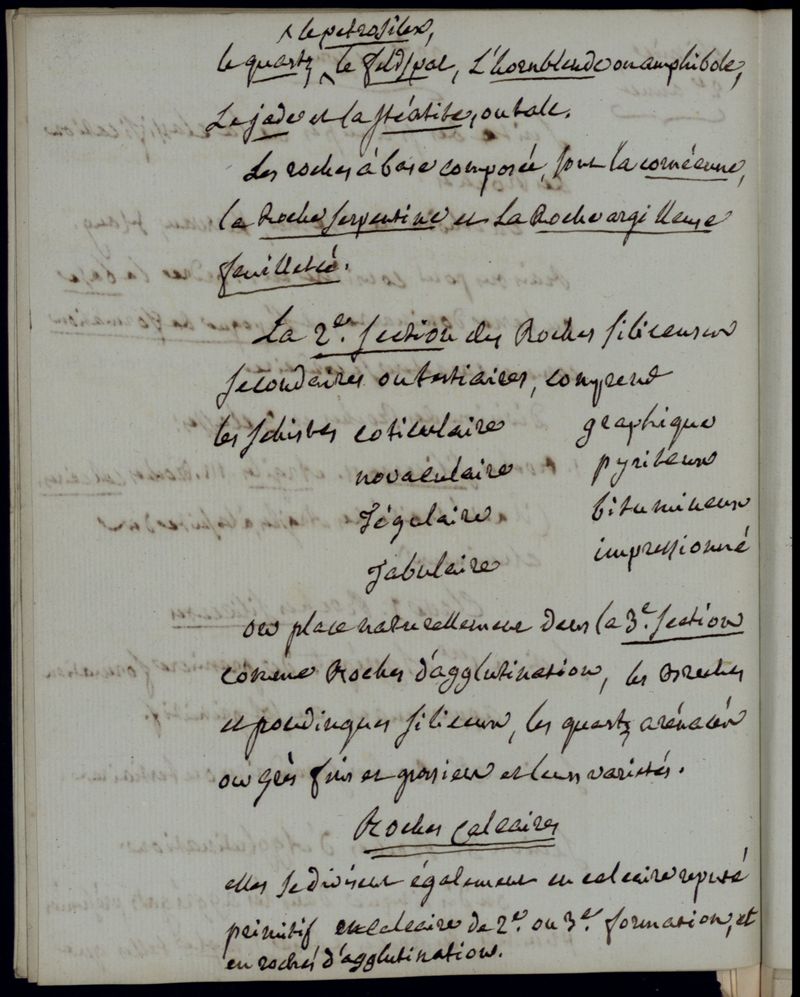 ^ le petrosilex,
le quartz ^ le feldspat, L'hornblende ou amphibole,
Le jade et la stéatite, ou talc.
Les roches à base composée, sont la cornéenne,
la Roche serpentine et La Roche argilleuse
feuilletée.
La 2e. section des Roches siliceuses
secondaires ou tertiaires, comprend
les schistes coticulaire graphique
novaculaire pyriteux
Tégulaire bitumineux
Tabulaire impressionné
on place naturellement dans la 3e. section
comme Roches d'agglutination, les Breches
et poudingues siliceux, les quartz arénacés
ou grès fins et grossiers et leurs variétés.
Roches calcaires
elles se divisent également en calcaire reputé
primitif en calcaire de 2e. ou 3e. formation, et
en roches d'agglutination.